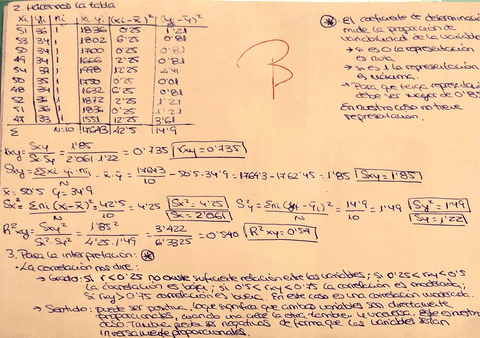 2. Hacemos la tabla
xi yi ni xi·yi (xi-x̄)² (yi-ȳ)²
51 36 1 1836 0'25 1'21
53 34 1 1802 6'25 0'81
50 34 1 1700 0'25 0'81
49 34 1 1666 2'25 0'81
54 37 1 1998 12'25 4'41
50 35 1 1750 0'25 0'01
48 34 1 1632 6'25 0'81
52 36 1 1872 2'25 1'21
51 36 1 1836 0'25 1'21
47 33 1551 12'25 3'61
Σ N=10 17643 42'5 14'9
El coeficiente de determinación
mide la proporción de
variabilidad de las variables
→ si es 0 la representación
es nula
→ si es 1 la representación
es máxima.
→ Para que tenga representa
debe ser mayor de 0'85
En nuestro caso no tiene
representación.
B
rxy = Sxy / Sx·Sy = 1'85 / 2'061·1'22 = 0'735 rxy = 0'735
Sxy = ΣΣxi·yi·ni / N - x̄·ȳ = 17643 / 10 - 50'5·34'9 = 1764'3 - 1762'45 = 1'85 Sxy = 1'85
x̄ = 50'5 ȳ = 34'9
Sx² = Σni(xi-x̄)² / N = 42'5 / 10 = 4'25 Sx² = 4'25 Sx = 2'061 Sy² = Σni(yi-ȳ)² / N = 14'9 / 10 = 1'49 Sy² = 1'49 Sy = 1'22
R²xy = Sxy² / Sx²·Sy² = 1'85² / 4'25·1'49 = 3'422 / 6'3325 = 0'540 R²xy = 0'54
3. Para la interpretación:
- La correlación nos dice:
→ Grado: si r < 0'25 no existe suficiente relación entre las variables; si 0'25 < rxy < 0'5
la correlación es baja; si 0'5 < rxy < 0'75 la correlación es moderada;
si rxy > 0'75 correlación es buena. En este caso es una correlación moderada.
→ Sentido: puede ser positiva, lo que significa que ambas variables son directamente
proporcionales, cuando una crece la otra también y viceversa. Este es nuestro
caso. También puede ser negativas de forma que las variables están
inversamente proporcionales.